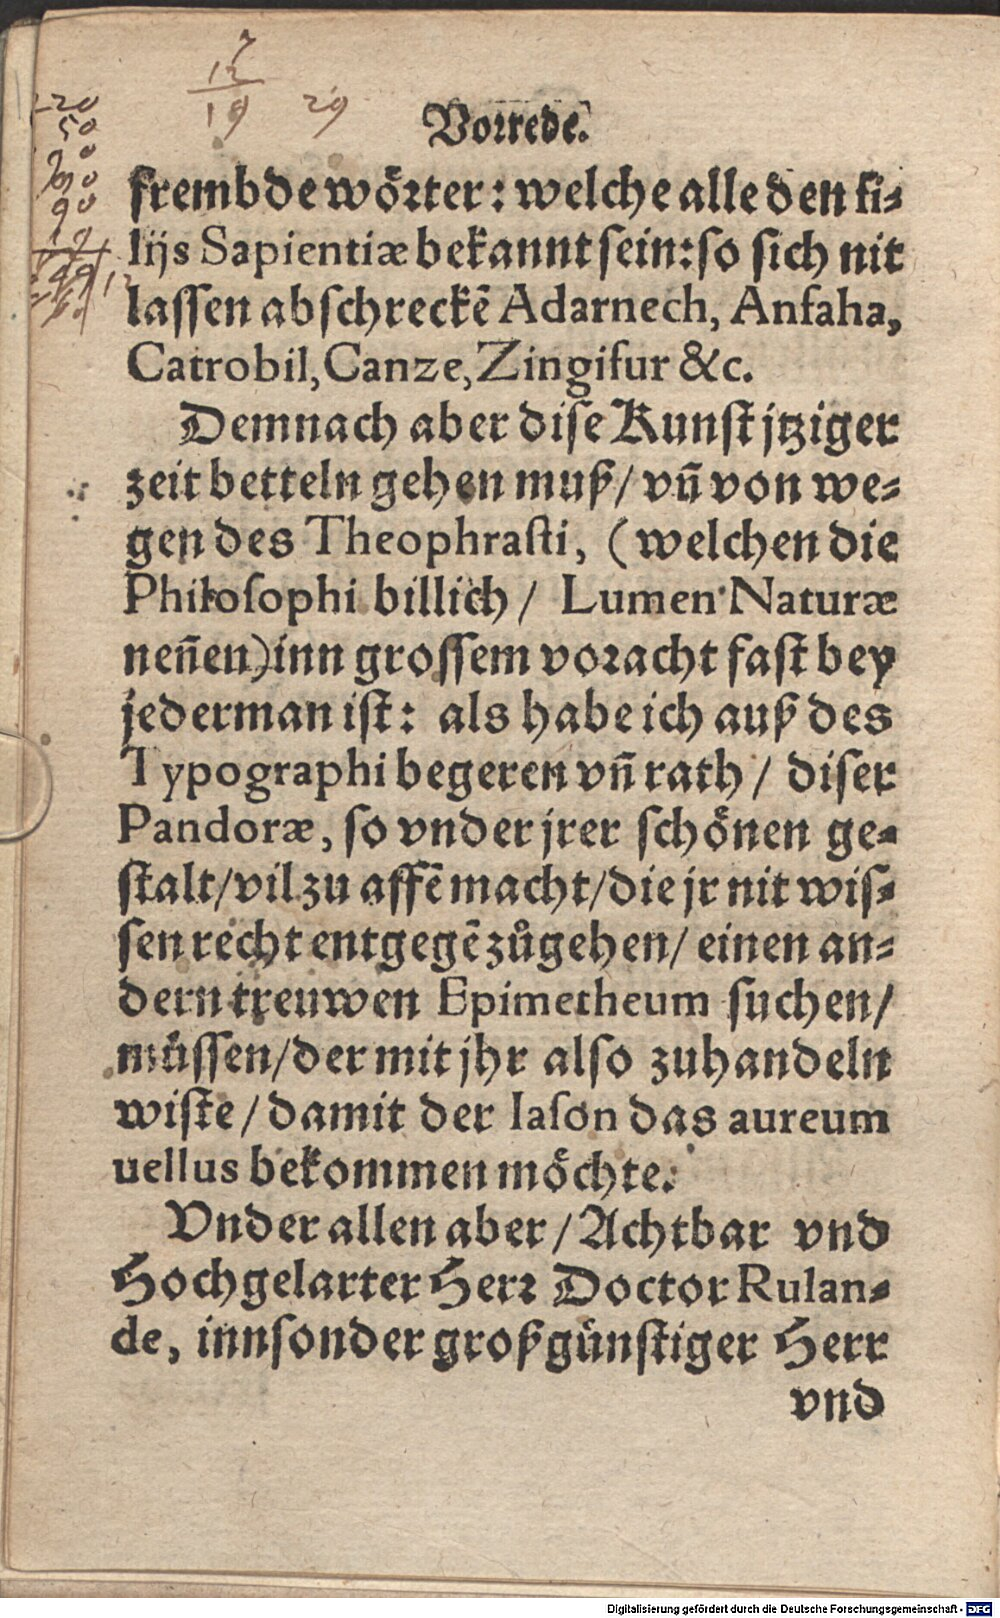 7
12
19 29
20
50
90
90
Vorrede.
frembde wörter: welche alle den fi⸗
lijs Sapientiæ bekannt sein: so sich nit
lassen abschreckē Adarnech, Anfaha,
Catrobil, Canze, Zingifur &c.
Demnach aber dise Kunst jtziger
zeit betteln gehen muß / vñ von we⸗
gen des Theophrasti, (welchen die
Philosophi billich / Lumen Naturæ
neñen) inn grossem voracht fast bey
jederman ist: als habe ich auß des
Typographi begeren vñ rath / diser
Pandoræ, so vnder jrer schönen ge⸗
stalt / vil zu affē macht / die jr nit wis⸗
sen recht entgegē zů gehen / einen an⸗
dern treuwen Epimetheum suchen /
müssen / der mit jhr also zuhandeln
wiste / damit der Iason das aureum
uellus bekommen möchte.
Vnder allen aber / Achtbar vnd
Hochgelarter Herr Doctor Rulan⸗
de, innsonder großgünstiger Herr
vnd
Digitalisierung gefördert durch die Deutsche Forschungsgemeinschaft - DFG